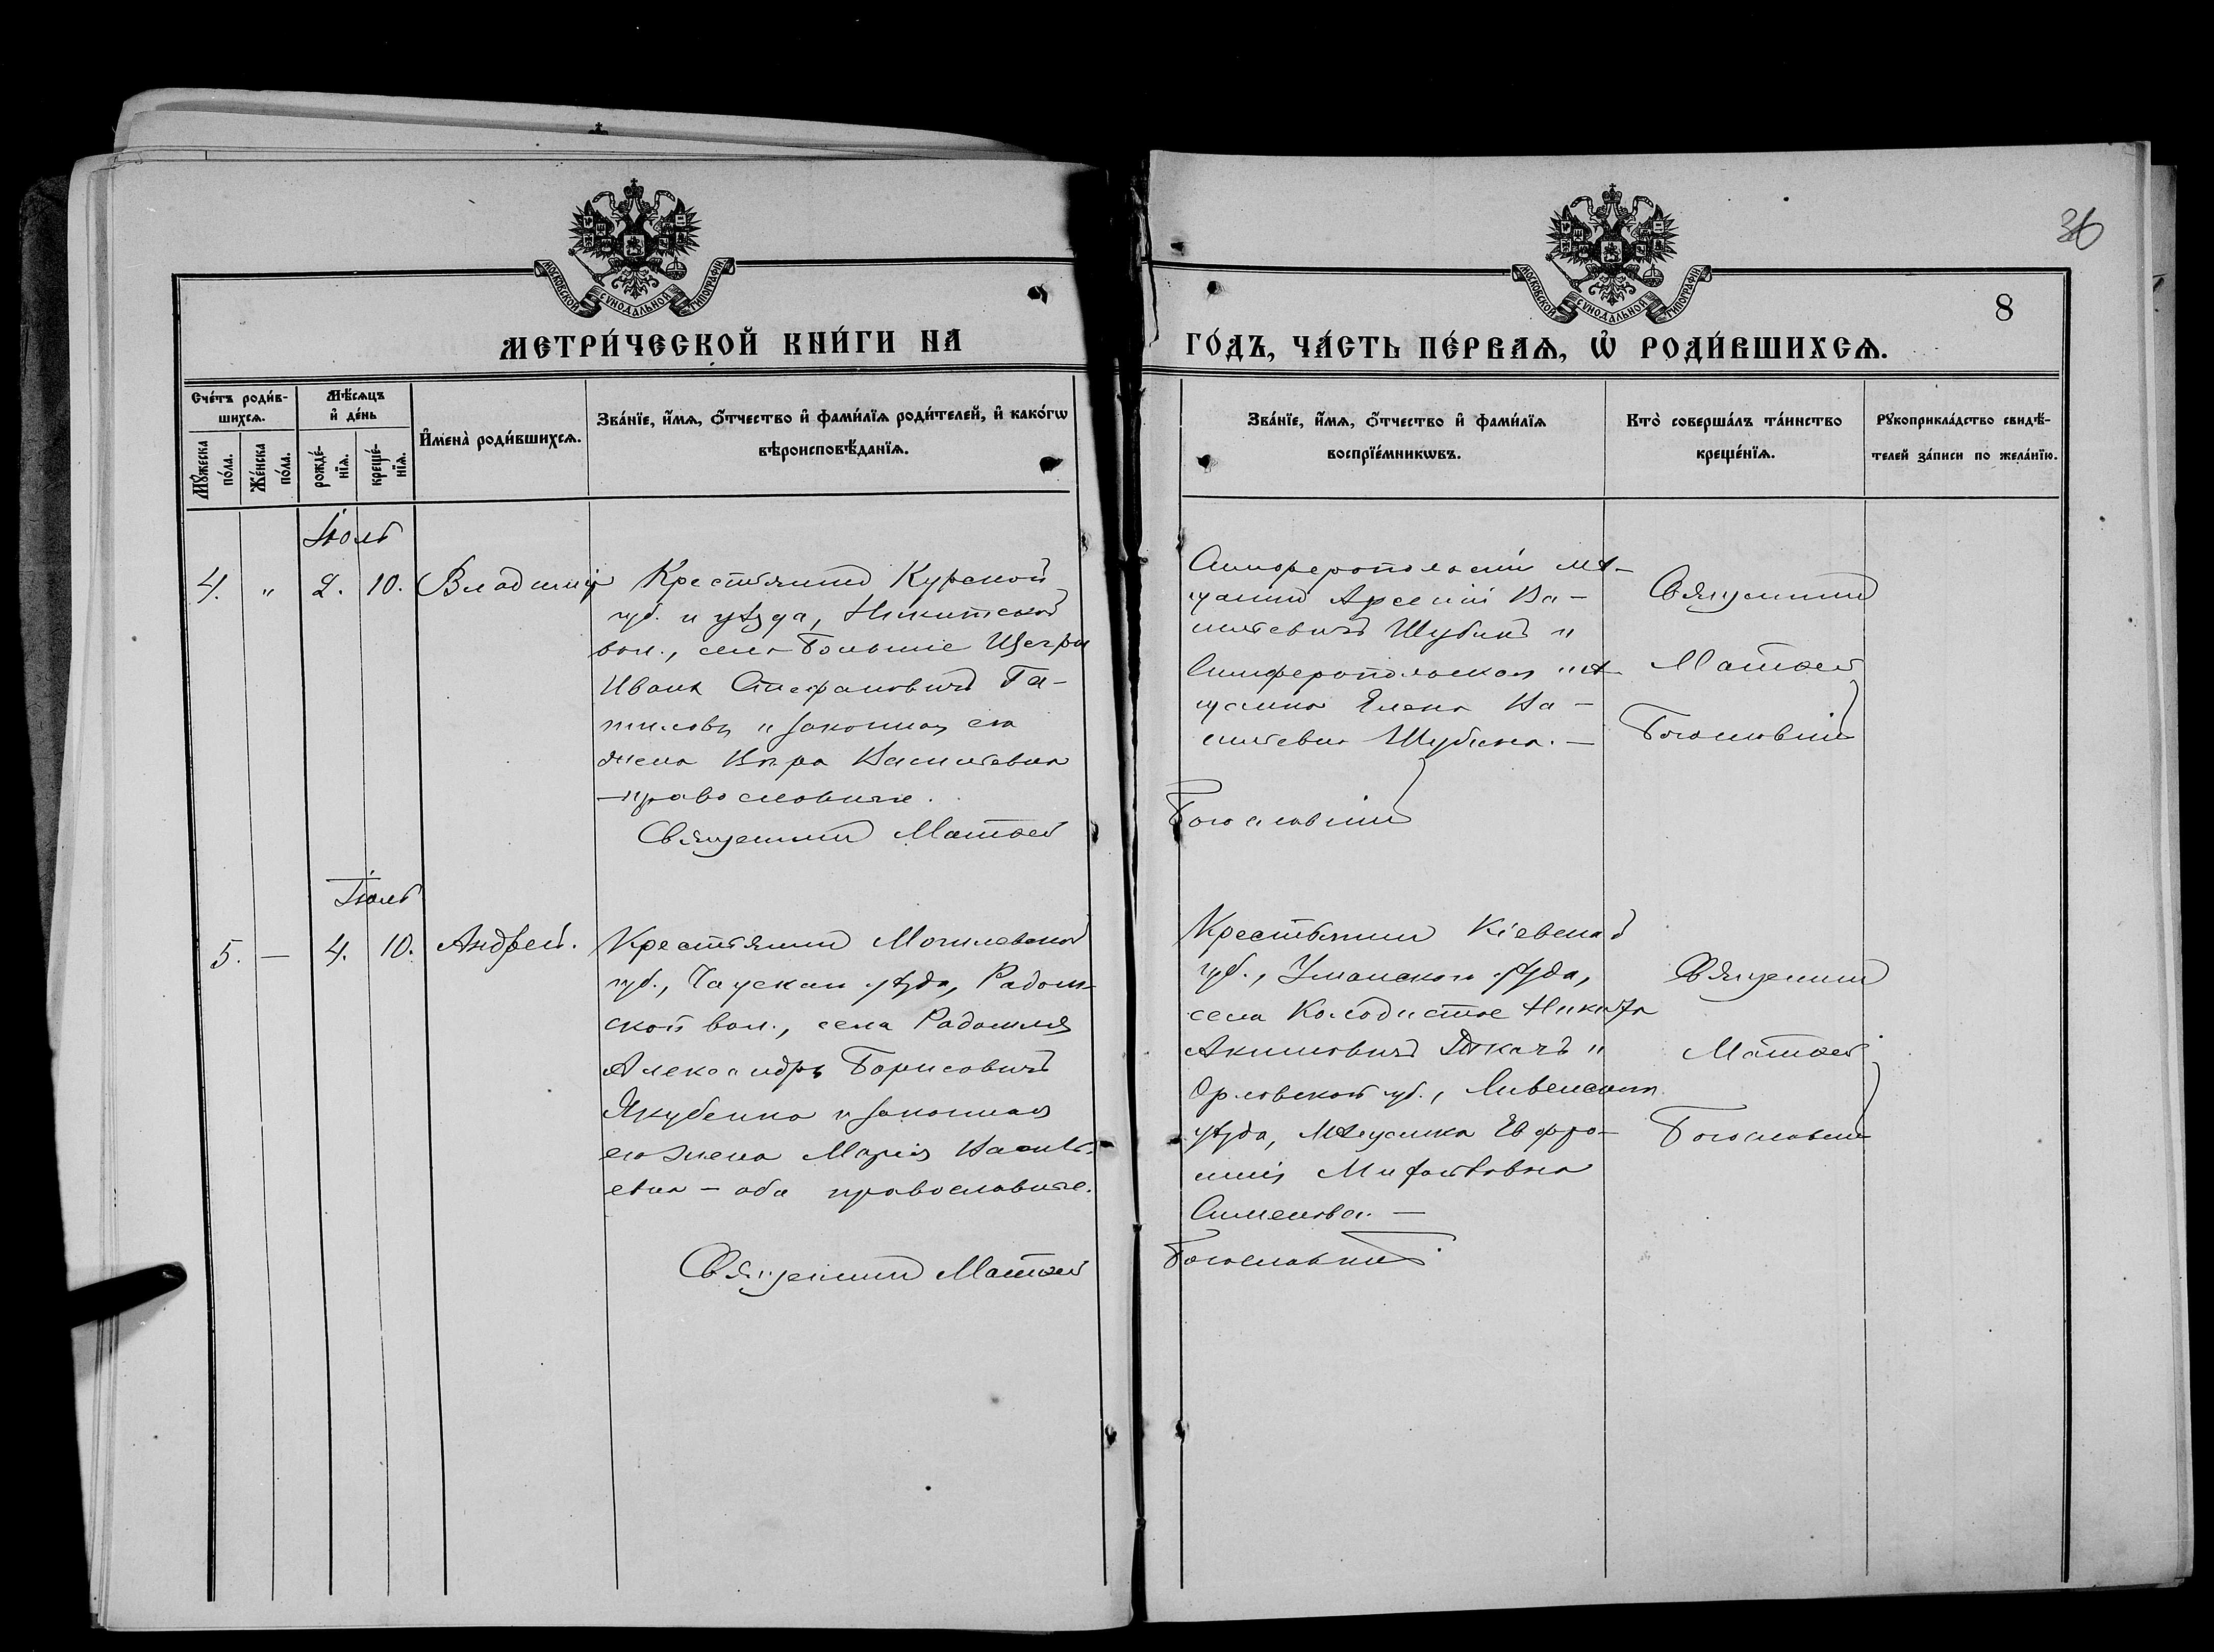 36
8
МОСКОВСКОЙ СѴНОДАЛЬНОЙ ТИПОГРАФІИ
МОСКОВСКОЙ СѴНОДАЛЬНОЙ ТИПОГРАФІИ
МЕТРИ́ЧЕСКОЙ КНИ́ГИ НА ГО́ДЪ, ЧА́СТЬ ПЕ́РВАѦ, Ѽ РОДИ́ВШИХСѦ.
Сче́тъ роди́в-
шихсѧ.
Мꙋ́жеска
по́ла.
Же́нска
по́ла.
Мѣ́сѧцъ
и҆ де́нь
рожде́-
нїѧ.
креще́-
нїѧ.
И҆мена̀ роди́вшихсѧ.
Зва́нїе, и҆́мѧ, ѻ҆́тчество и҆ фами́лїѧ роди́телей, и҆ како́гѡ
вѣроисповѣ́данїѧ.
Зва́нїе, и҆́мѧ, ѻ҆́тчество и҆ фами́лїѧ
воспрїе́мникѡвъ.
Кто̀ соверша́лъ та́инство
креще́нїѧ.
Рꙋкоприкла́дство свидѣ́-
телей за́писи по жела́нїю.
Іюль
4. " 2. 10. Владиміръ
Крестьянинъ Курской
губ. и уѣзда, Никитской
вол., села Большіе Щегры
Иванъ Стефановичъ Га-
пиловъ и законная его
жена Вѣра Васильевна
—православные.
Священникъ Матѳей Богословскій
Симферопольскій мѣ-
щанинъ Арсеній Ва-
сильевичъ Шубинъ и
Симферопольская мѣ-
щанка Елена Ва-
сильевна Шубина. —
Священникъ
Матѳей
Богословскій
Іюль
5. — 4. 10. Андрей.
Крестьянинъ Могилевской
губ., Чаускаго уѣзда, Радом-
ской вол., села Радомля
Александръ Борисовичъ
Якубенко и законная
его жена Марія Василь-
евна — оба православные.
Священникъ Матѳей Богословскій
Крестьянинъ Кіевской
губ., Уманскаго уѣзда,
села Колодистое Никита
Акимовичъ Ткачъ и
Орловской губ., Ливенскаго
уѣзда, мѣщанка Евфро-
синія
Семенова. —
Священникъ
Матѳей
Богословскій